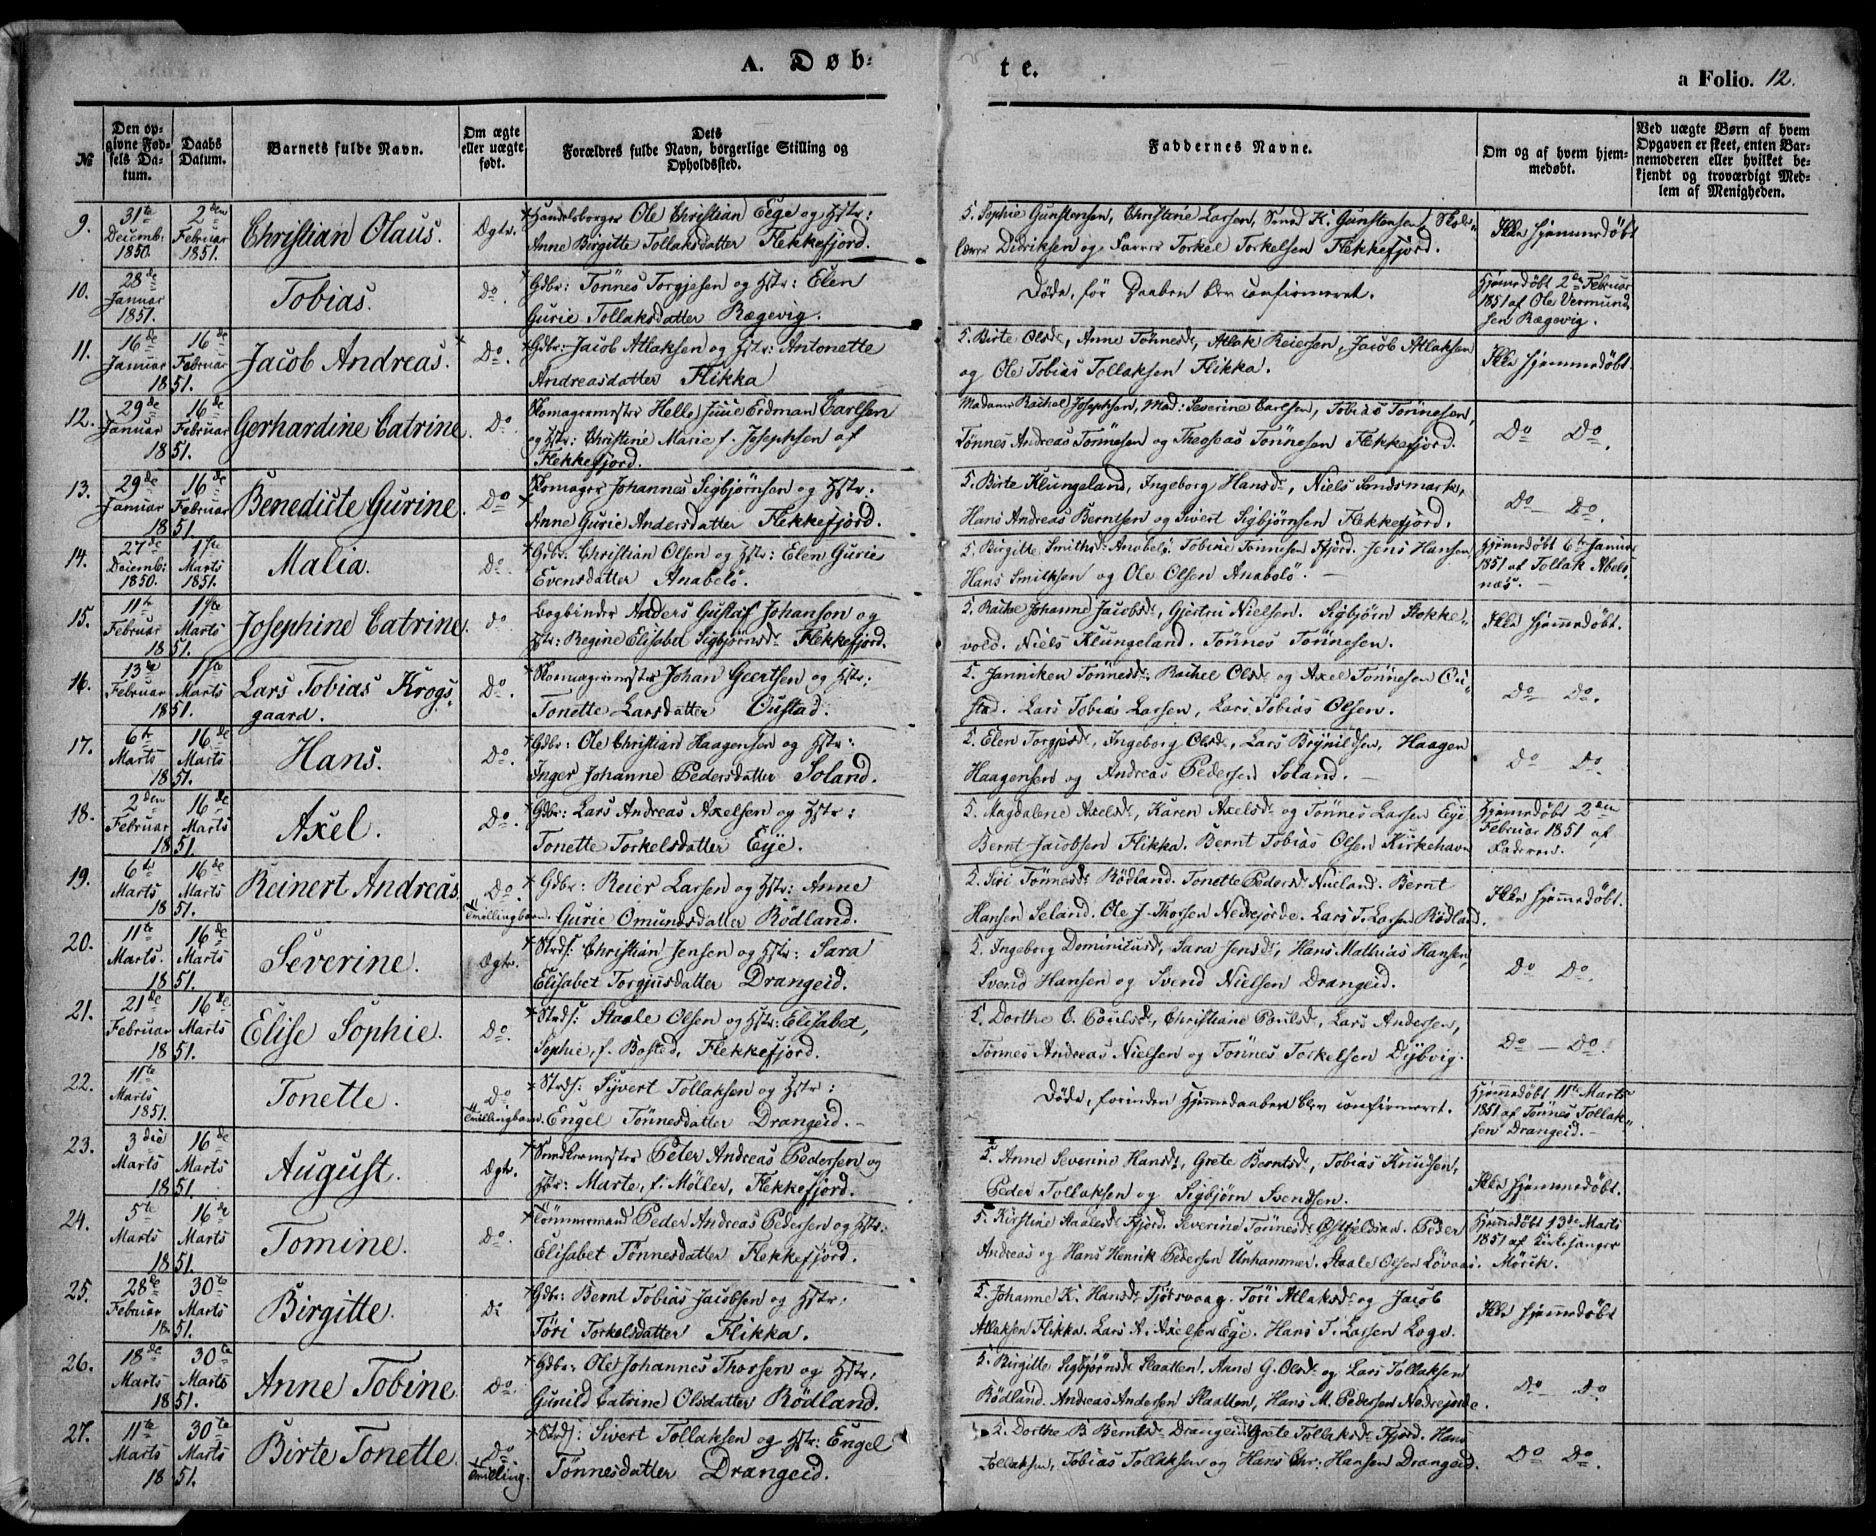 A. Døb-
te.
a Folio. 12.
№
Den op-
givne Fød-
sels Da-
tum.
Daabs
Datum.
Barnets fulde Navn.
Om ægte
eller uægte
født.
Dets
Forældres fulde Navn, borgerlige Stilling og
Opholdssted.
Faddernes Navne.
Om og af hvem hjem-
medøbt.
Ved uægte Børn af hvem
Opgaven er skeet, enten Bar-
nemoderen eller hvilket be-
kjendt og troværdigt Med-
lem af Menigheden.
9. 31te Decemb: 1850. 2den Februar 1851. Christian Olaus. Ægte.
Handelsborger Ole Christian Eege og Hstr:
Anne Birgitte Tollaksdatter Flekkefjord.
5. Sophie Gunstensen, Christine Larsen, Svend K. Gunstensen, Skole-
lærer Didriksen og Farver Torkel Torkelsen Flekkefjord.
Ikke hjemmedøbt
10. 28de Januar 1851. Tobias. Do.
Gdbr: Tönnes Torgjesen og Hstr: Elen
Gurie Tollaksdatter Rægevig.
Døde, før Daaben blev confirmeret.
Hjemedøbt 2den Februar
1851 af Ole Vermund-
sen Rægevig.
11. 16de Januar 16de Februar 1851. Jacob Andreas. Do.
Gdbr: Jacob Atlaksen og Hstr: Antonette
Andreasdatter Flikka
5. Birte Olsd., Anne Tönnesd., Atlak Reiersen, Jacob Atlaksen
og Ole Tobias Tollaksen Flikka.
Ikke hjemmedøbt.
12. 29de Januar 16de Februar 1851. Gerhardine Catrine. Do.
Skomagermester Helle Juue Erdman Carlsen
og Hstr: Christine Marie f. Josephsen af
Flekkefjord.
Madame Rachel Josephsen, Mad: Severine Carlsen, Tobias Tönnesen,
Tönnes Andreas Tönnesen og Theoseas Tönnesen Flekkefjord.
Do Do.
13. 29de Januar 16de Februar 1851. Benedicte Gurine. Do
Skomager Johannes Sigbjørnsen og Hstr:
Anne Gurie Andersdatter Flekkefjord.
5. Birte Klungeland, Ingeborg Hansd., Niels Sandsmark,
Hans Andreas Berntsen og Sivert Sigbjørnsen Flekkefjord.
Do Do.
14. 27de Decemb: 1850. 1ste Marts 1851. Malia. Do.
Gdbr: Christian Olsen og Hstr: Elen Gurie
Evensdatter Anabelö.
5. Birgitte Smithsd. Anabelö. Tobine Tönnesen Fjord. Jens Hansen
Hans Smithsen og Ole Olsen Anabelö.
Hjemedøbt 6te Januar
1851 af Tollak Abels-
næs.
15. 11te Februar 1ste Marts 1851. Josephine Catrine. do.
Bogbinder Anders Gustaf Johanson og
Hstr: Regine Elisabet Sigbjørnsd. Flekkefjord.
5. Rachel Johanne Jacobsd., Gjertru Nielsen. Sigbjørn Stokke-
vold. Niels Klungeland. Tönnes Tönnesen.
Ikke hjemmedøbt.
16. 13de Februar 1ste Marts 1851. Lars Tobias Krogs-
gaard. Do.
Skomagermester Johan Geertsen og Hstr:
Tonette Larsdatter Oustad.
5. Janniken Tönnesd. Rachel Olsd. og Axel Tönnesen Ou-
stad. Lars Tobias Larsen, Lars Tobias Olsen.
Do Do.
17. 6te Marts 16de Marts 1851. Hans. Do.
Gdbr: Ole Christian Haagensen og Hstr:
Inger Johanne Pedersdatter Soland.
5. Elen Torgjusd., Ingeborg Olsd., Lars Brynildsen, Haagen
Haagensen og Andreas Pedersen Soland.
Do Do.
18. 2den Februar 16de Marts 1851. Axel. Do.
Gdbr: Lars Andreas Axelsen og Hstr:
Tonette Torkelsdatter Eye.
5. Magdalene Axelsd., Karen Axelsd. og Tönnes Larsen Eye
Bernt Jacobsen Flikka. Bernt Tobias Olsen Kirkehavn
Hjemedøbt 2den
Februar 1851 af
Faderen.
19. 6te Marts 16de Marts 1851. Reinert Andreas. Do.
Tvillingbarn.
Gdbr: Reier Larsen og Hstr: Anne
Gurie Omundsdatter Rödland.
5. Siri Tönnesd. Rödland. Tonette Pedersd. Nueland. Bernt
Hansen Seland. Ole J. Thorsen Nedrejorde. Lars T. Larsen Rödland.
Ikke hjemmedøbt.
20. 11te Marts. 16de Marts 1851. Severine. Ægte.
Strds: Christian Jensen og Hstr: Sara
Elisabet Torgjusdatter Drangeid.
5. Ingeborg Dominicusd., Sara Jensd., Hans Mathias Hansen,
Svend Hansen og Svend Nielsen Drangeid.
Do Do.
21. 21de Februar 16de Marts 1851. Elise Sophie. Do.
Strds: Staale Olsen og Hstr: Elisabet,
Sophie, f. Bosted, Flekkefjord.
5. Dorthe C. Poulsd., Christiane Poulsd., Lars Andersen,
Tönnes Andreas Nielsen og Tönnes Torkelsen Dybvig.
Do Do.
22. 11te Marts 1851. Tonette. Do
Tvillingbarn.
Strds: Syvert Tollaksen og Hstr:
Engel Tönnesdatter Drangeid.
Døde, forinden Hjemedaaben blev confirmeret.
Hjemmedøbt 11te Marts
1851 af Tönnes Tollak-
sen Drangeid.
23. 3die Marts 16de Marts 1851. August. Ægte.
Snedkermester Peter Andreas Pedersen og
Hstr: Marte, f. Møller, Flekkefjord.
5. Anne Severine Hansd., Grete Berntsd., Tobias Knudsen,
Peder Tollaksen og Sigbjörn Svendsen.
Ikke hjemmedøbt.
24. 5te Marts 16de Marts 1851. Tomine. Do.
Tömmermand Peder Andreas Pedersen og Hstr:
Elisabet Tönnesdatter Flekkefjord.
5. Kirstine Staalesd. Fjord. Severine Tönnesd. Peder
Andreas og Hans Henrik Pedersen Unhammer. Staale Olsen Lövaas.
Hjemedøbt 13de Marts
1851 af Kirkesanger
Mörik.
25. 28de Februar 30te Marts 1851. Birgitte. Do
Gdbr: Bernt Tobias Jacobsen og Hstr:
Töri Torkelsdatter Flikka.
5. Johanne K. Hansd. Fjörsvaag. Töri Atlaksd. og Jacob
Atlaksen Flikka. Lars A. Axelsen Eye. Hans T. Larsen Loge.
Ikke hjemmedøbt
26. 18de Marts 30te Marts 1851. Anne Tobine. Do.
Gdbr: Ole Johannes Thorsen og Hstr:
Gunild Catrine Olsdatter Rödland.
5. Birgitte Sigbjørnsd. Slaatten. Anne G. Olsd. og Lars Tollaksen
Rödland. Andreas Andersen Slaatten, Hans M. Pedersen Nedrejorde.
Do Do
27. 11te Marts 30te Marts 1851. Birte Tonette. Do
Tvilling.
Strds: Sivert Tollaksen og Hstr: Engel
Tönnesdatter Drangeid.
5. Dorthe B. Berntsd. Drangeid. Grete Tollaksd. Fjord. Hans
Tollaksen, Tobias Tollaksen og Hans Chr: Hansen Drangeid.
Do Do.